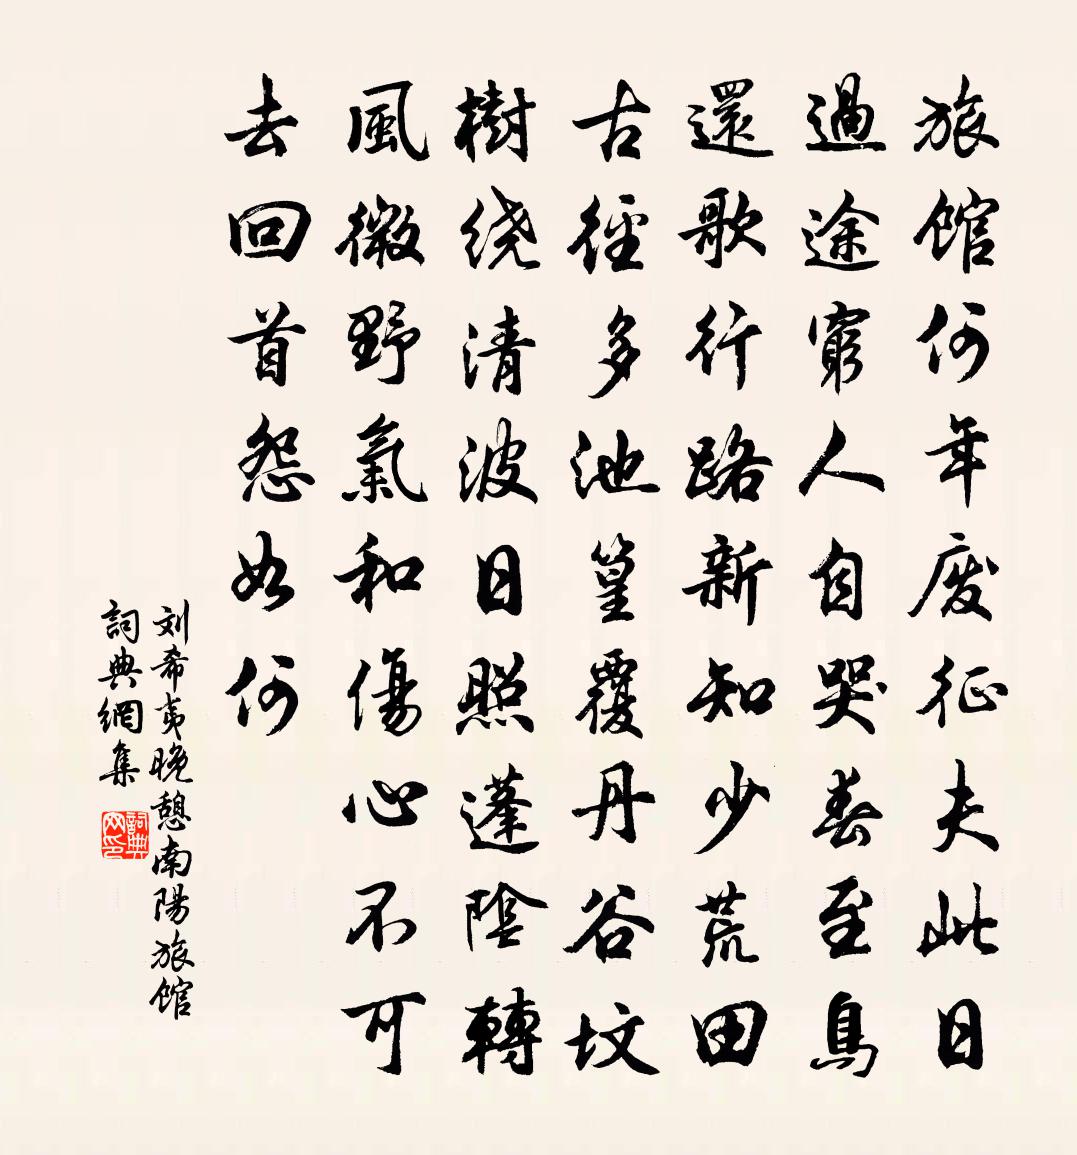 旅館何年废征夫此日
過途窮人自哭春至鳥
還歌行路新知少荒田
古徑多池篁覆丹谷坟
樹绕清波日照蓬陰轉
風微野氣和傷心不可
去回首怨如何
刘希夷晚憩南陽旅館
詞典網集
詞典
网印